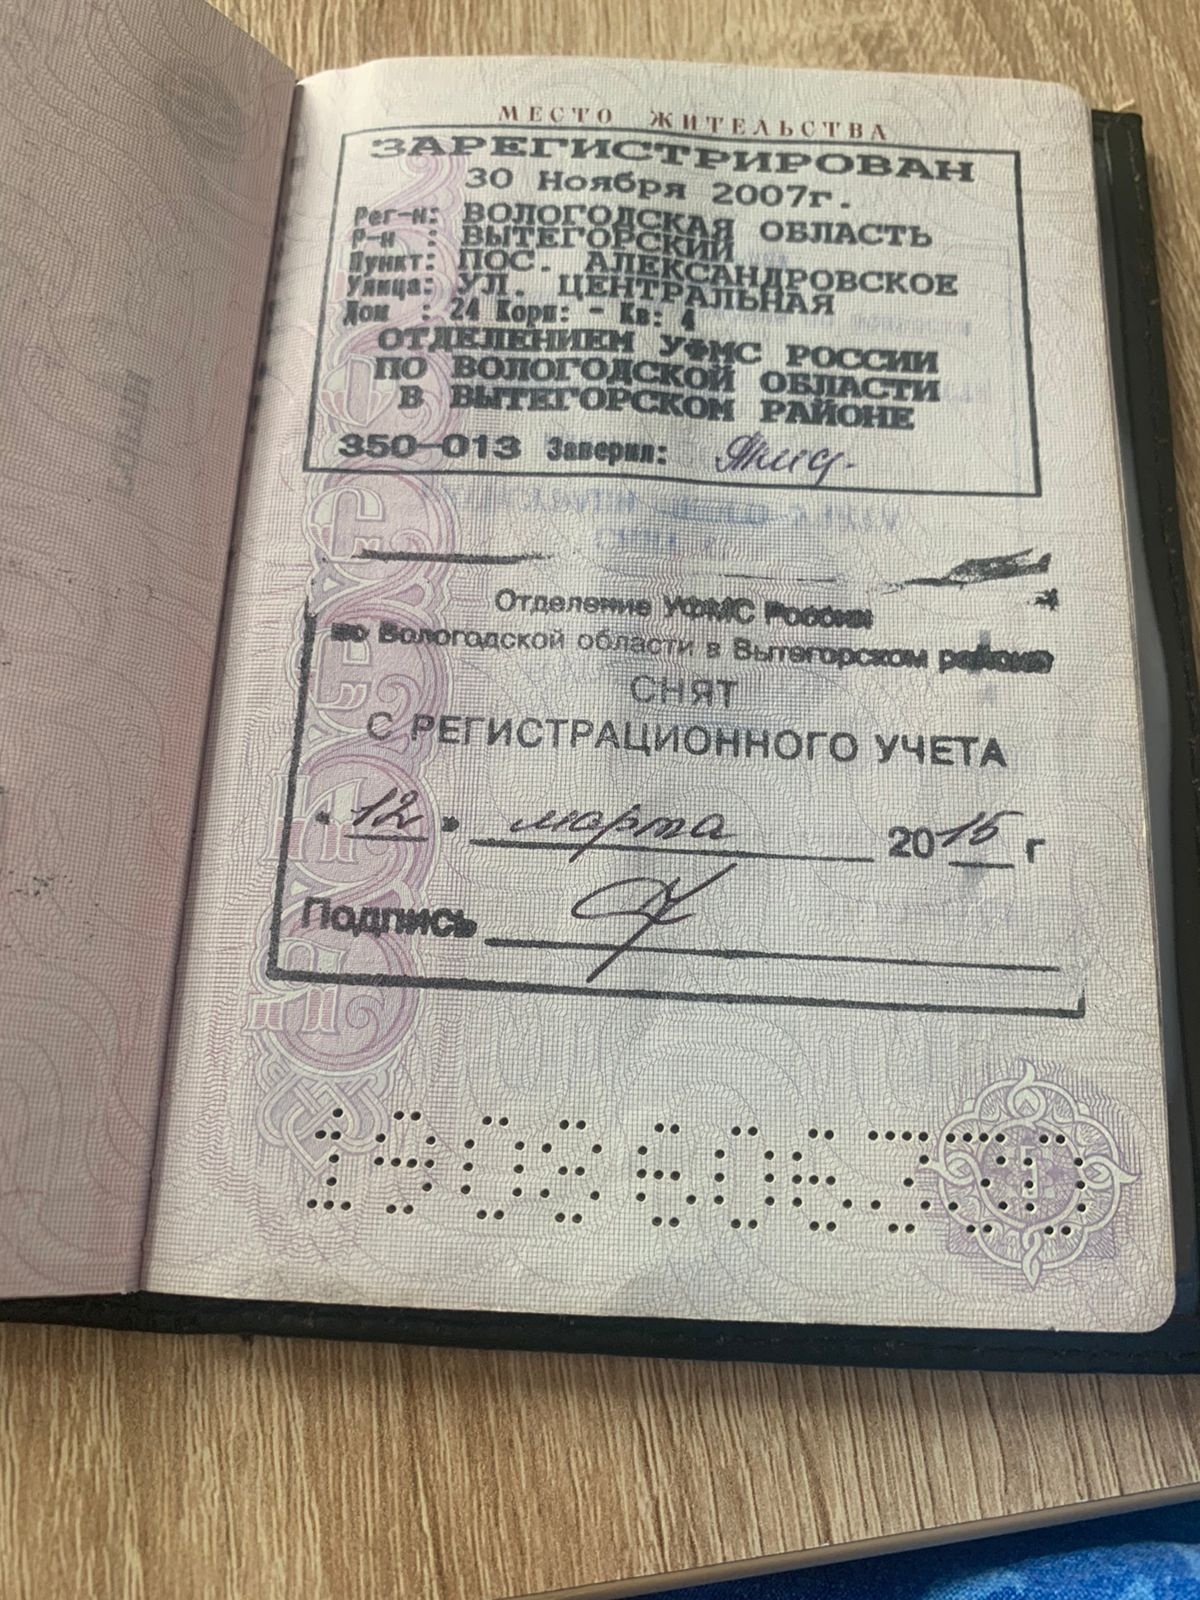 МЕСТО ЖИТЕЛЬСТВА
ЗАРЕГИСТРИРОВАН
30 Ноября 2007г.
Рег-н: ВОЛОГОДСКАЯ ОБЛАСТЬ
Р-н : ВЫТЕГОРСКИЙ
Пункт: ПОС. АЛЕКСАНДРОВСКОЕ
Улица: УЛ. ЦЕНТРАЛЬНАЯ
Дом : 24 Корп: - Кв: 4
ОТДЕЛЕНИЕМ УФМС РОССИИ
ПО ВОЛОГОДСКОЙ ОБЛАСТИ
В ВЫТЕГОРСКОМ РАЙОНЕ
350-013 Заверил:
Отделение УФМС России
по Вологодской области в Вытегорском районе
СНЯТ
С РЕГИСТРАЦИОННОГО УЧЕТА
12 марта 2015 г
Подпись